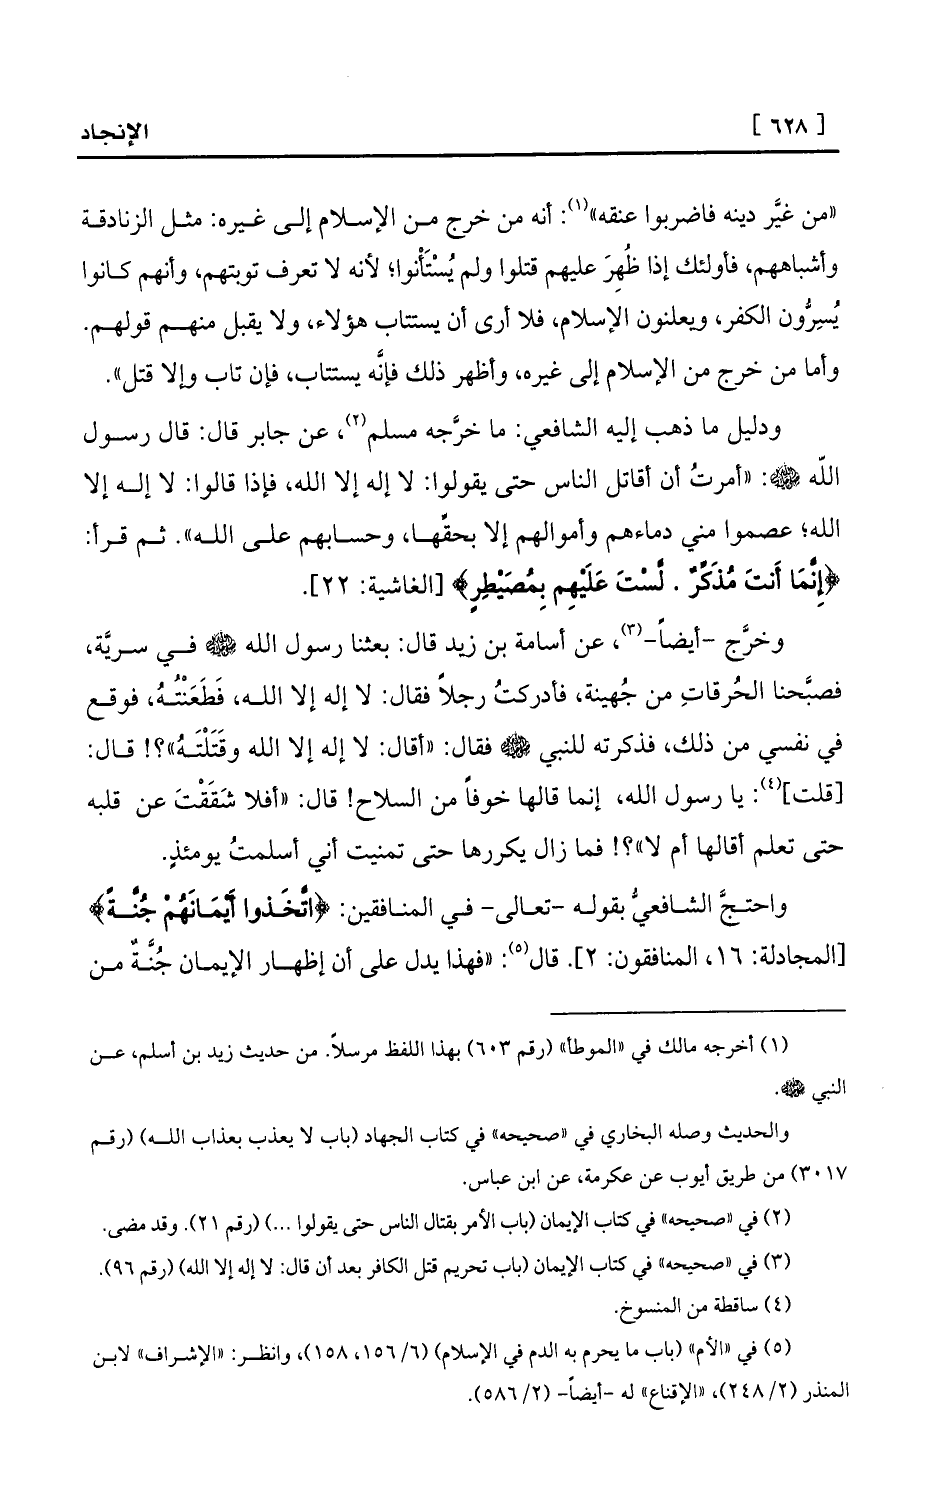 [ ٦٢٨ ]
الإنجاد
«من غيَّر دينه فاضربوا عنقه»(١): أنه من خرج من الإسلام إلى غيره: مثل الزنادقة
وأشباههم، فأولئك إذا ظُهِرَ عليهم قتلوا ولم يُسْتَأْنوا؛ لأنه لا تعرف توبتهم، وأنهم كانوا
يُسِرُّون الكفر، ويعلنون الإسلام، فلا أرى أن يستتاب هؤلاء، ولا يقبل منهم قولهم.
وأما من خرج من الإسلام إلى غيره، وأظهر ذلك فإنَّه يستتاب، فإن تاب وإلا قتل».
ودليل ما ذهب إليه الشافعي: ما خرَّجه مسلم(٢)، عن جابر قال: قال رسول
الله ﷺ: «أمرتُ أن أقاتل الناس حتى يقولوا: لا إله إلا الله، فإذا قالوا: لا إله إلا
الله؛ عصموا مني دماءهم وأموالهم إلا بحقِّها، وحسابهم على الله». ثم قرأ:
﴿إِنَّمَا أَنتَ مُذَكِّرٌ . لَّسْتَ عَلَيْهِم بِمُصَيْطِرٍ﴾ [الغاشية: ٢٢].
وخرَّج -أيضاً-(٣)، عن أسامة بن زيد قال: بعثنا رسول الله ﷺ في سريَّة،
فصبَّحنا الحُرقاتِ من جُهينة، فأدركتُ رجلاً فقال: لا إله إلا الله، فَطَعَنْتُهُ، فوقع
في نفسي من ذلك، فذكرته للنبي ﷺ فقال: «أقال: لا إله إلا الله وقَتَلْتَهُ»؟! قال:
[قلت](٤): يا رسول الله، إنما قالها خوفاً من السلاح! قال: «أفلا شَقَقْتَ عن قلبه
حتى تعلم أقالها أم لا»؟! فما زال يكررها حتى تمنيت أني أسلمتُ يومئذٍ.
واحتجَّ الشافعيُّ بقوله -تعالى- في المنافقين: ﴿اتَّخَذُوا أَيْمَانَهُمْ جُنَّةً﴾
[المجادلة: ١٦، المنافقون: ٢]. قال(٥): «فهذا يدل على أن إظهار الإيمان جُنَّةٌ من
(١) أخرجه مالك في «الموطأ» (رقم ٦٠٣) بهذا اللفظ مرسلاً. من حديث زيد بن أسلم، عن
النبي ﷺ.
والحديث وصله البخاري في «صحيحه» في كتاب الجهاد (باب لا يعذب بعذاب الله) (رقم
٣٠١٧) من طريق أيوب عن عكرمة، عن ابن عباس.
(٢) في «صحيحه» في كتاب الإيمان (باب الأمر بقتال الناس حتى يقولوا ...) (رقم ٢١). وقد مضى.
(٣) في «صحيحه» في كتاب الإيمان (باب تحريم قتل الكافر بعد أن قال: لا إله إلا الله) (رقم ٩٦).
(٤) ساقطة من المنسوخ.
(٥) في «الأم» (باب ما يحرم به الدم في الإسلام) (٦/ ١٥٦، ١٥٨)، وانظر: «الإشراف» لابن
المنذر (٢/ ٢٤٨)، «الإقناع» له -أيضاً- (٢/ ٥٨٦).